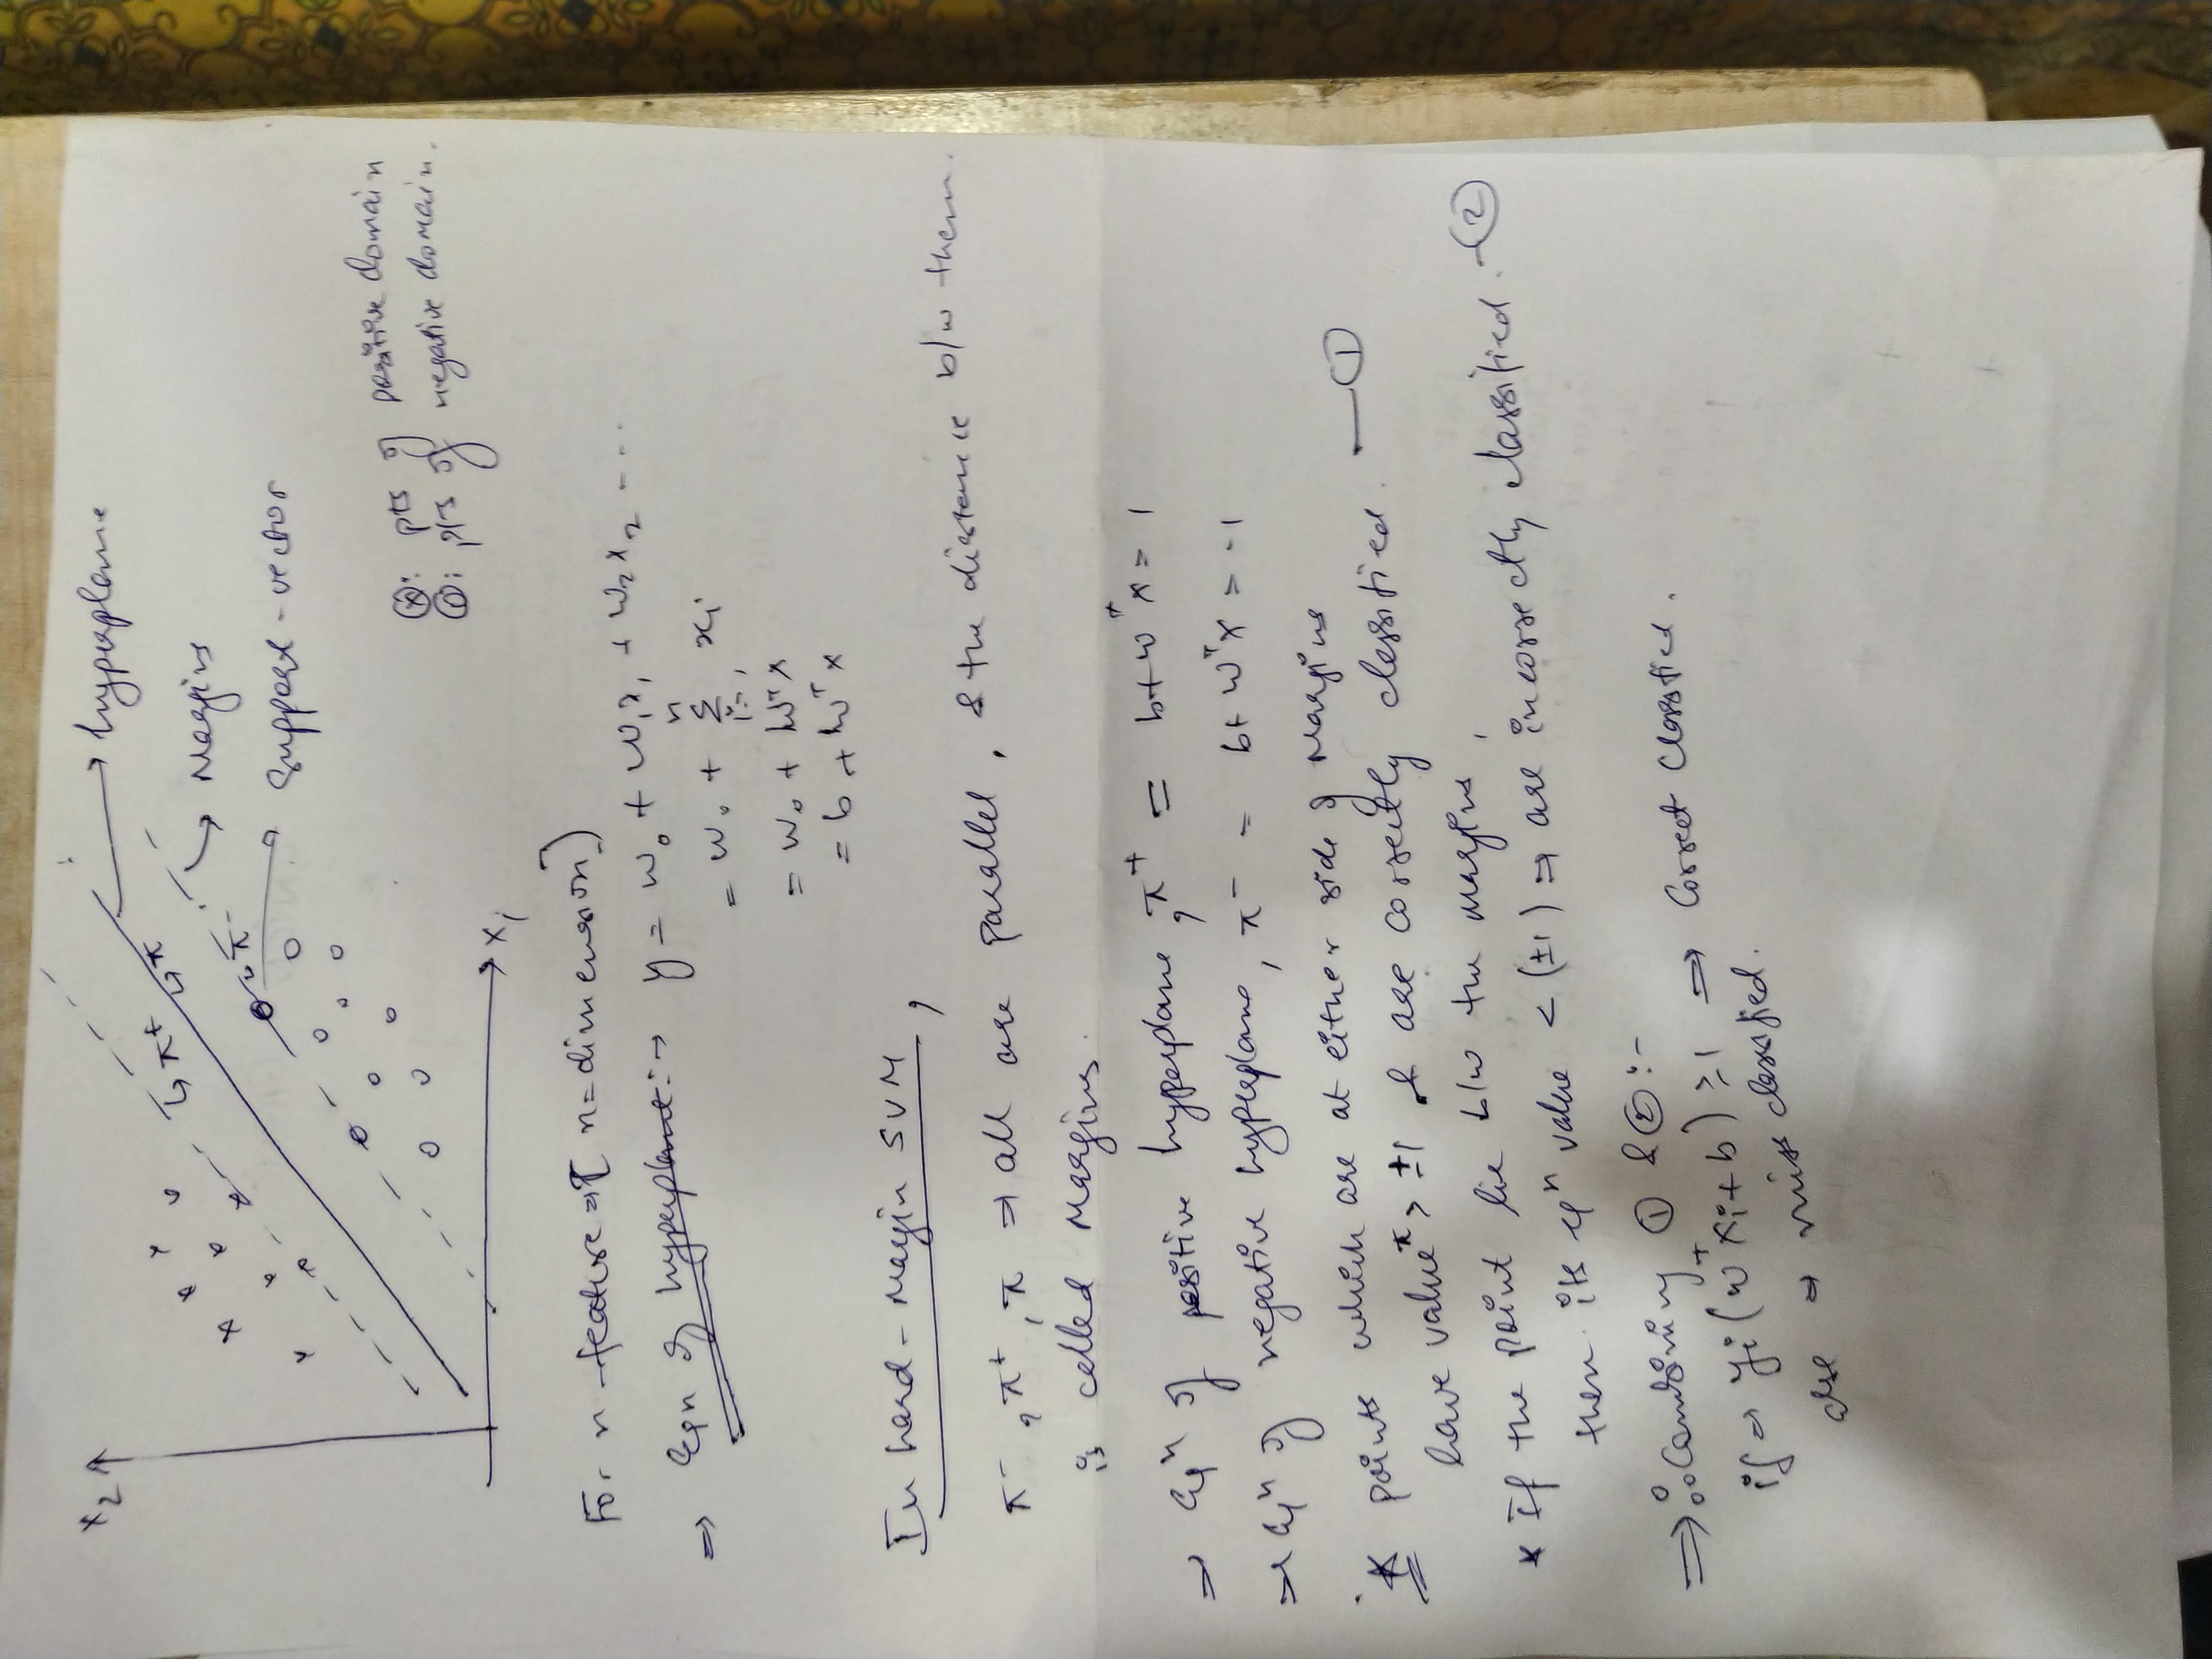 x₂
π⁺
π
hyperplane
Margins
π⁻
Support-vector
ⓧ: pts of positive domain
⓪: pts of negative domain.
x₁
For n-feature ⇒ [n=dimension]
⇒ Eqn of hyperplane :→ y = w₀ + w₁x₁ + w₂x₂ ----
= w₀ + Σⁿᵢ₌₁ xᵢ
= w₀ + wᵀx
= b + wᵀx
In hard-Margin SVM,
π⁻, π⁺, π ⇒ all are parallel, & the distance b/w them.
is called Margins.
⇒ Eqⁿ of positive hyperplane, π⁺ = b+wᵀx = 1
⇒ Eqⁿ of negative hyperplane, π⁻ = b+wᵀx = -1
* points which are at either side of Margins
have value > ±1 & are correctly classified. —①
* If the point lie b/w the margins,
then its eqⁿ value < (±1) ⇒ are incorrectly classified. -②
⇒ ∴ Combining ① & ② :-
if ⇒ yi(wᵀxi+b) ≥ 1 ⇒ Correct Classified.
else ⇒ miss classified.